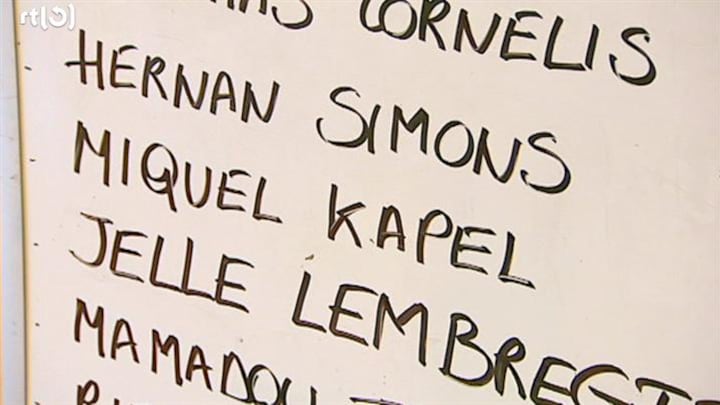 rtl
CORNELIS
HERNAN SIMONS
MIQUEL KAPEL
JELLE LEMBREGT
MAMADOU